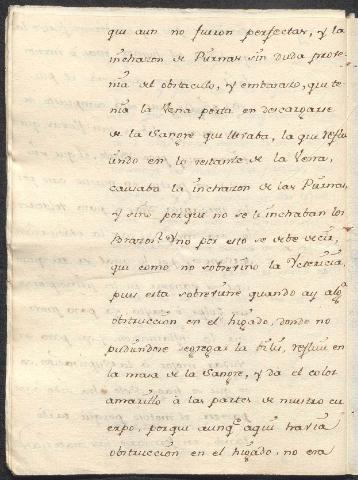 que aun no fueron perfectas, y la
inchazon de Piernas sin duda prove-
nia del obstaculo, y embarazo, que te-
nia la Vena porta en descargarse
de la Sangre que llevaba, la que reflu-
iendo en lo restante de la Vena,
causaba la inchazon de las Piernas,
y sino porque no se le inchaban los
Brazos? Y no por esto se debe decir,
que como no sobrevino la Yctericia,
pues esta sobreviene quando ay algª
obstruccion en el higado, donde no
pudiendose segregar la bilis, refluie en
la masa de la Sangre, y da el color
amarillo à las partes de nuestro cu-
erpo, porque aunqᵉ aqui havia
obstruccion en el higado, no era